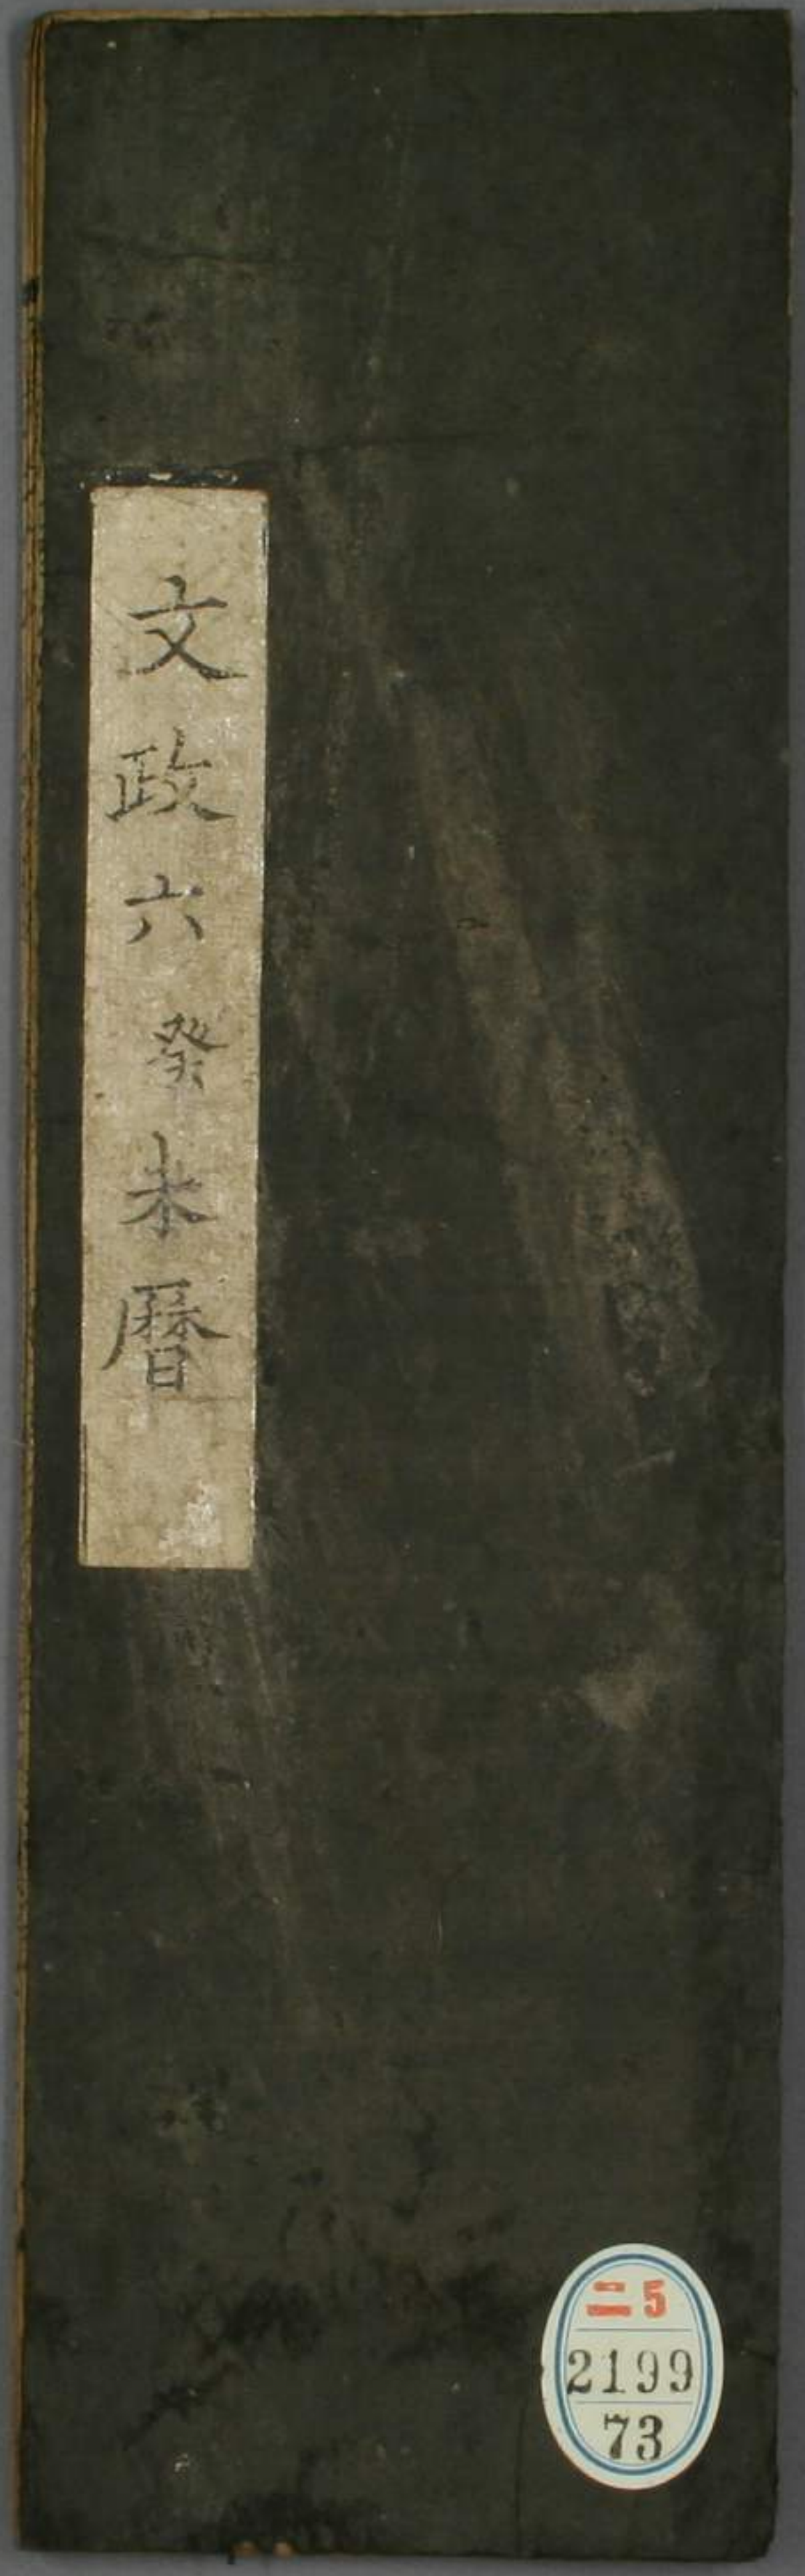 文政六癸未暦
二5
2199
73